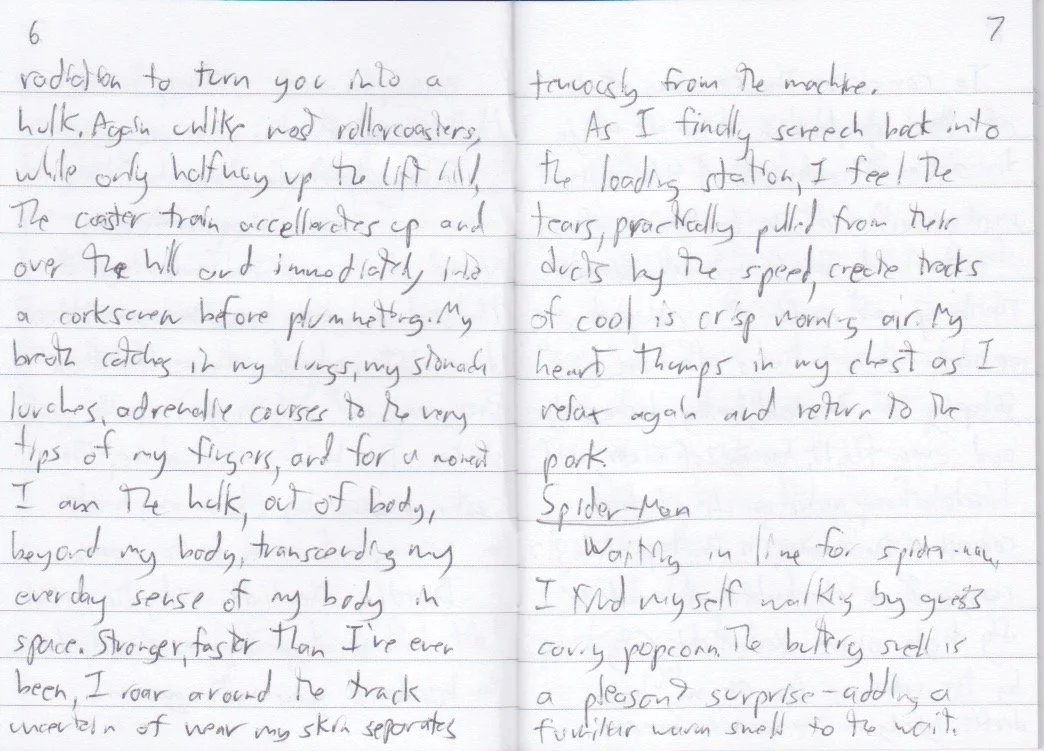 6
radiation to turn you into a
hulk. Again unlike most rollercoasters,
while only halfway up the lift hill,
The coaster train accellerates up and
over the hill and immediately into
a corkscrew before plummeting. My
breath catches in my lungs, my stomach
lurches, adrenaline courses to the very
tips of my fingers, and for a moment
I am the hulk, out of body,
beyond my body, transcending my
everday sense of my body in
space. Stronger, faster than I've ever
been, I roar around the track
uncertain of wear my skin separates
7
tenuously from the machine.
As I finally screech back into
the loading station, I feel the
tears, practically pulled from their
ducts by the speed, create tracks
of cool is crisp morning air. My
heart thumps in my chest as I
relax again and return to the
park.
Spider-Man
Waiting in line for spider-man,
I find myself walking by guests
carry popcorn. The buttery smell is
a pleasant surprise - adding a
familiar warm smell to the wait.